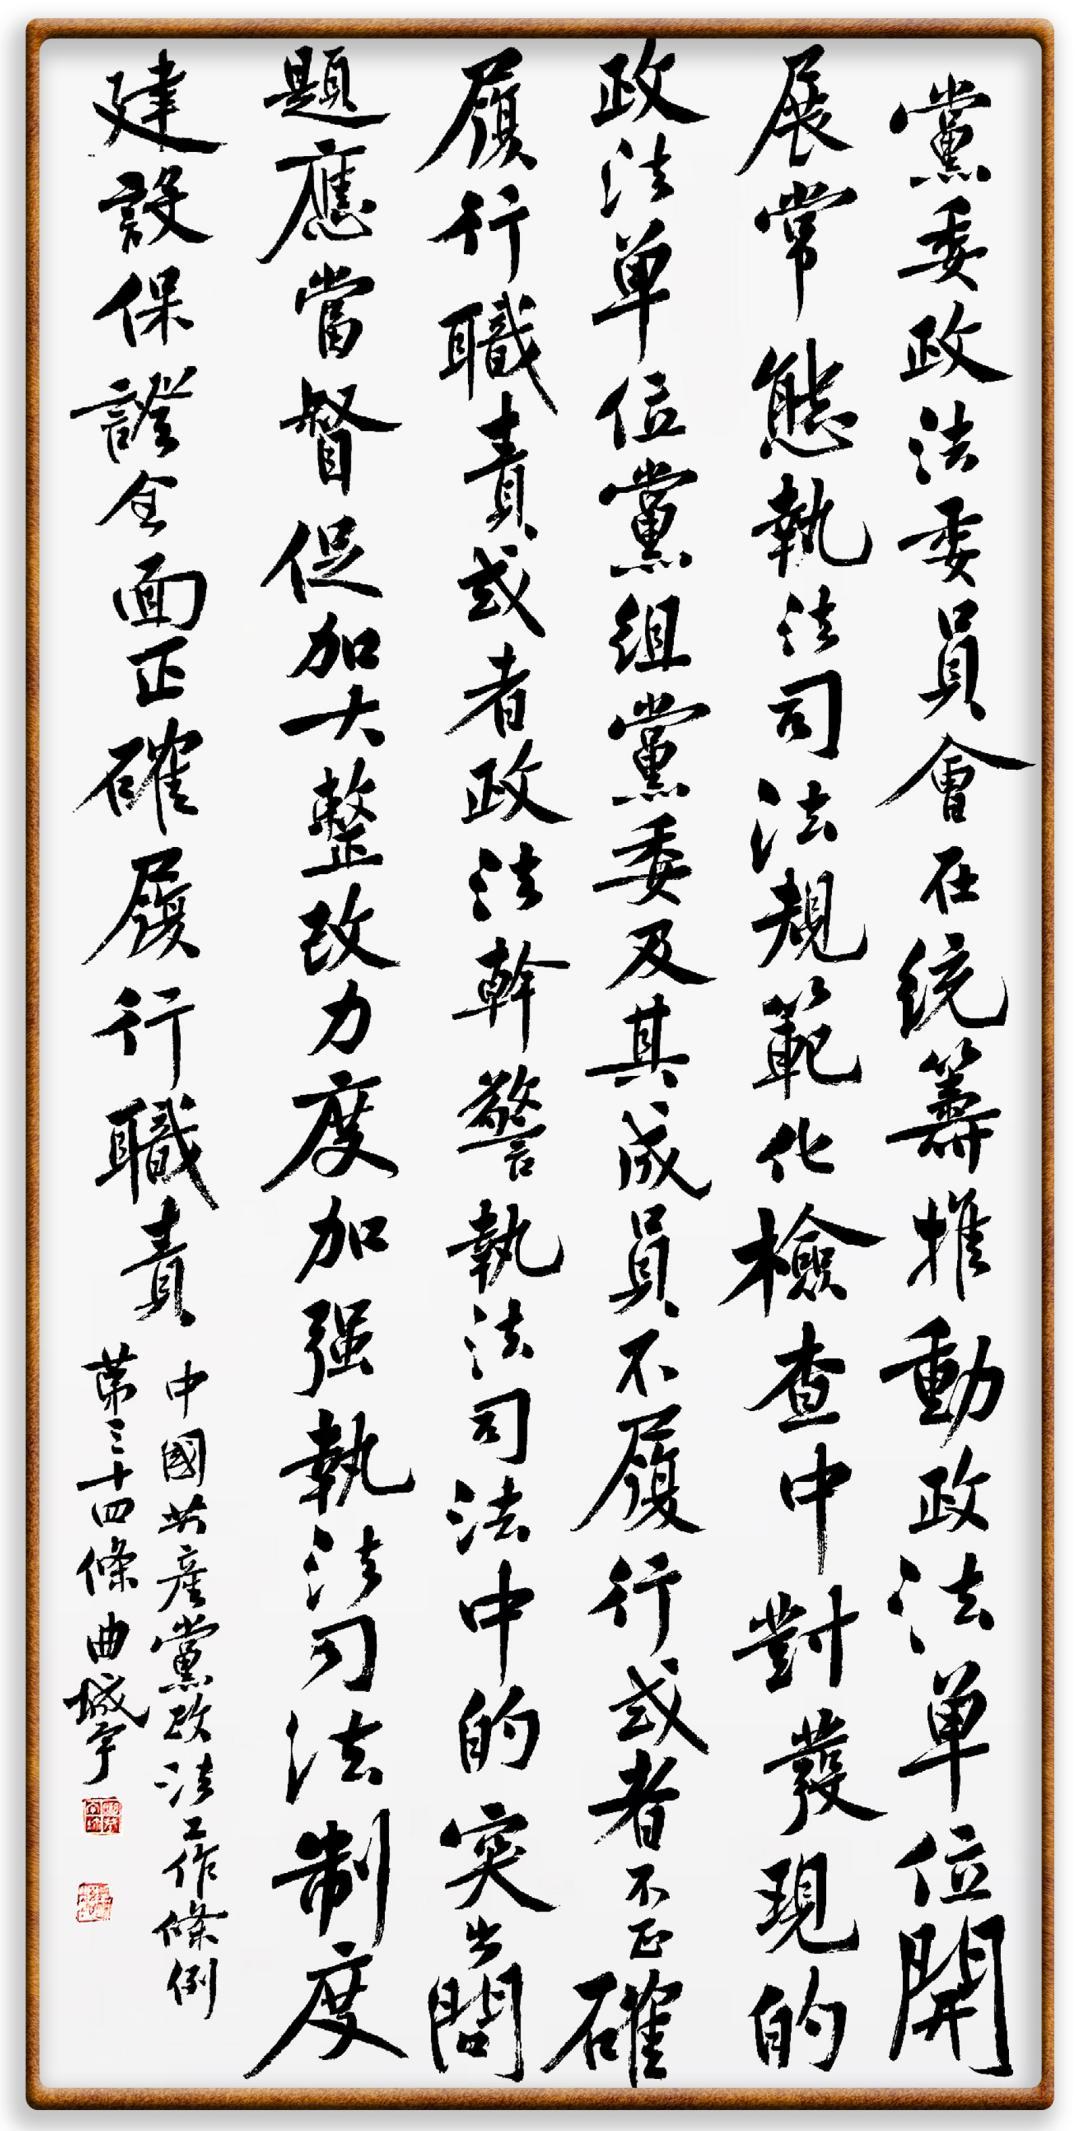 黨委政法委員會在統籌推動政法單位開
展常態執法司法規範化檢查中對發現的
政法單位黨組黨委及其成員不履行或者不正確
履行職責或者政法幹警執法司法中的突出問
題應當督促加大整改力度加强執法司法制度
建設保證全面正確履行職責
中國共產黨政法工作條例
第三十四條 曲城宇